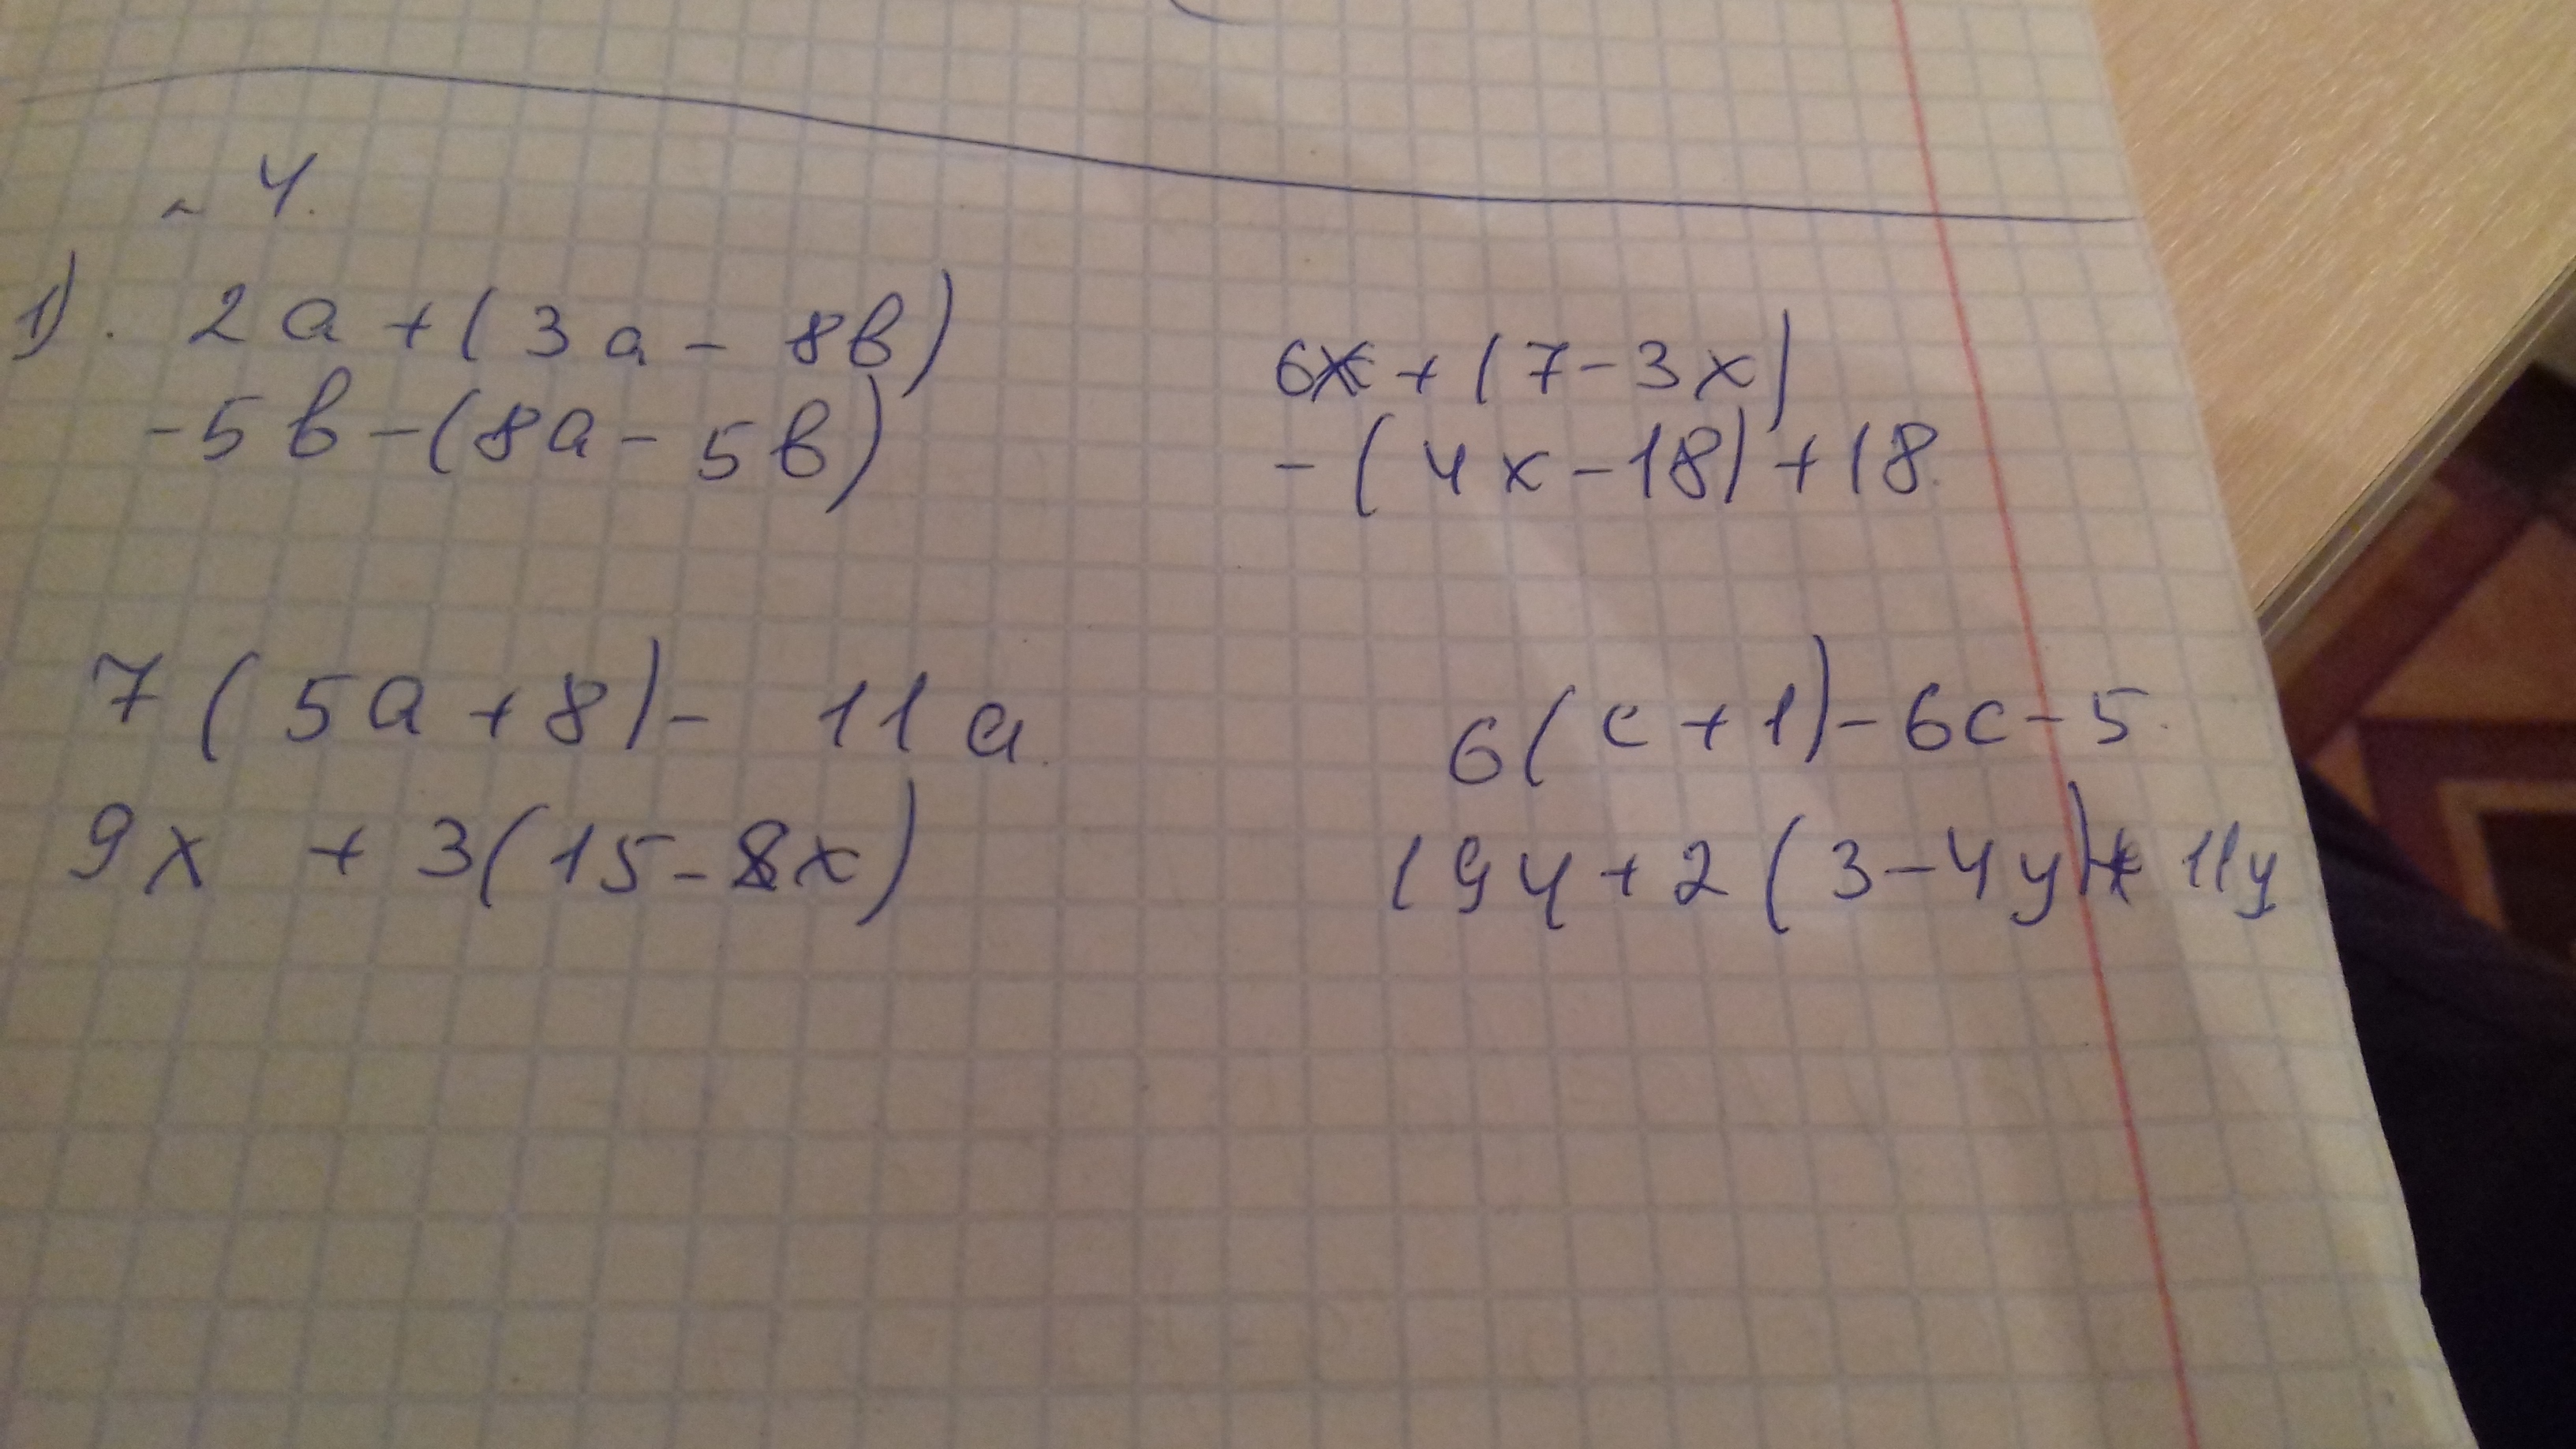 ~ 4.
1). 2a + (3a - 8b)
-5b - (8a - 5b)
6x + (7 - 3x)
- (4x - 18) + 18.
7(5a + 8) - 11a.
9x + 3(15 - 8x)
6(c + 1) - 6c - 5.
19y + 2(3 - 4y) + 11y